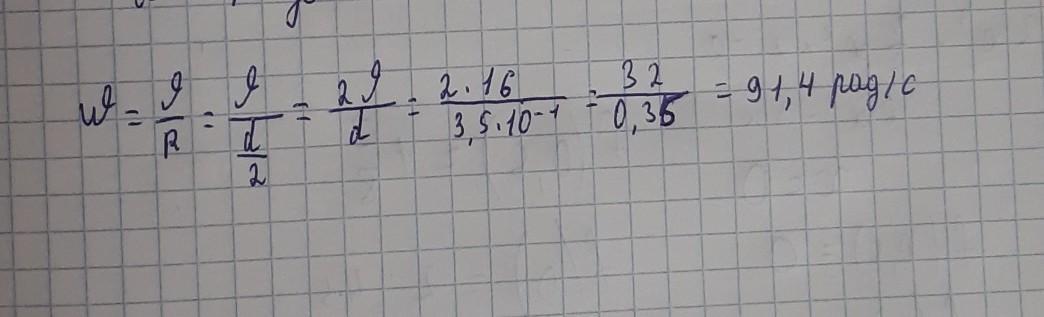 ω = ϑ/R = ϑ/(d/2) = 2ϑ/d = 2·16/3,5·10⁻¹ = 32/0,35 = 91,4 рад/с